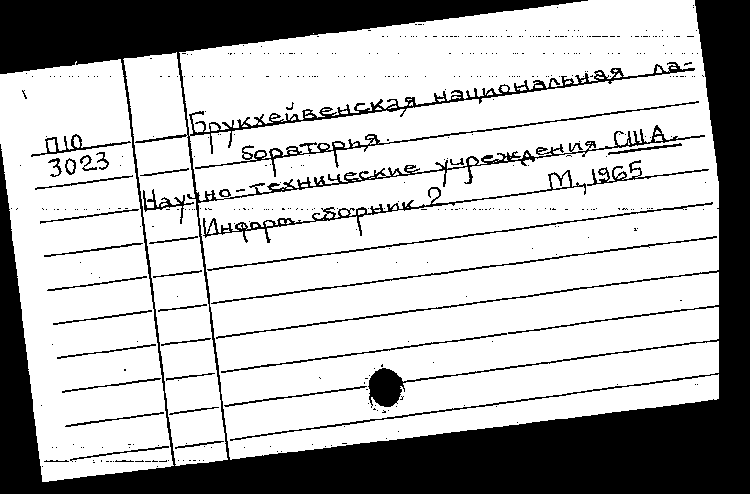 П10
3023
Брукхейвенская национальная ла=
боратория.
Научно=технические учреждения США.
Информ. сборник. 2. М., 1965